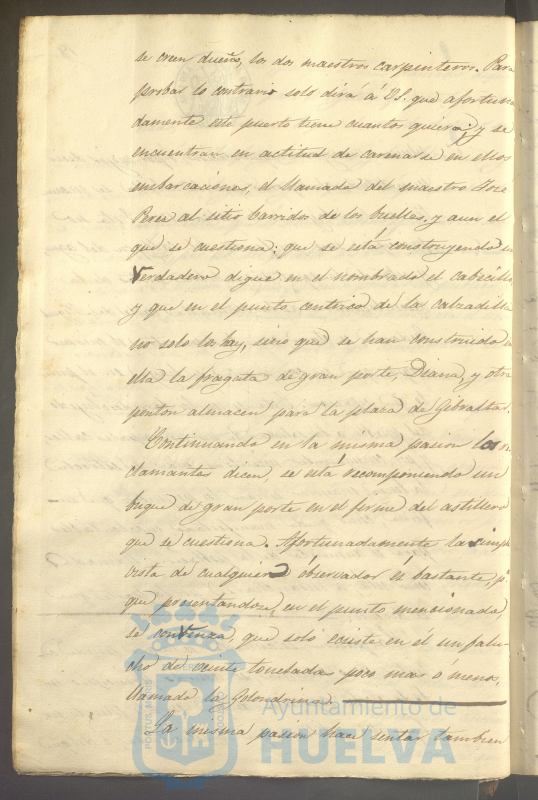 se creen dueños, los dos maestros carpinteros. Para
probar lo contrario solo dirá á V.S. que afortuna
damente este puerto tiene cuantos quiera; y se
encuentran en actitud de carenarse en ellos
embarcaciones, el llamado del maestro José
Perea al sitio barridos de los bueltas, y aun el
que se cuestiona: que se está construyendo un
verdadero digue en el nombrado el cabecillo
y que en el punto centrico de la calzadilla
no solo los hay, sino que se han construido en
ella la fragata de gran porte, Diana, y otro
ponton almacen para la plaza de Gibraltar.
Continuando en la misma pasion los re
clamantes dicen, se está recomponiendo un
buque de gran porte en el firme del astillero
que se cuestiona. Afortunadamente la simple
vista de cualquiera observador és bastante, pª
que presentandose, en el punto mencionado,
se convenza, que solo ecsiste en él un falu-
cho de veinte toneladas poco mas ó menos,
llamado la Golondrina.
La misma pasion hace sentar tambien
Ayuntamiento de
HUELVA
PORTUS MARIS